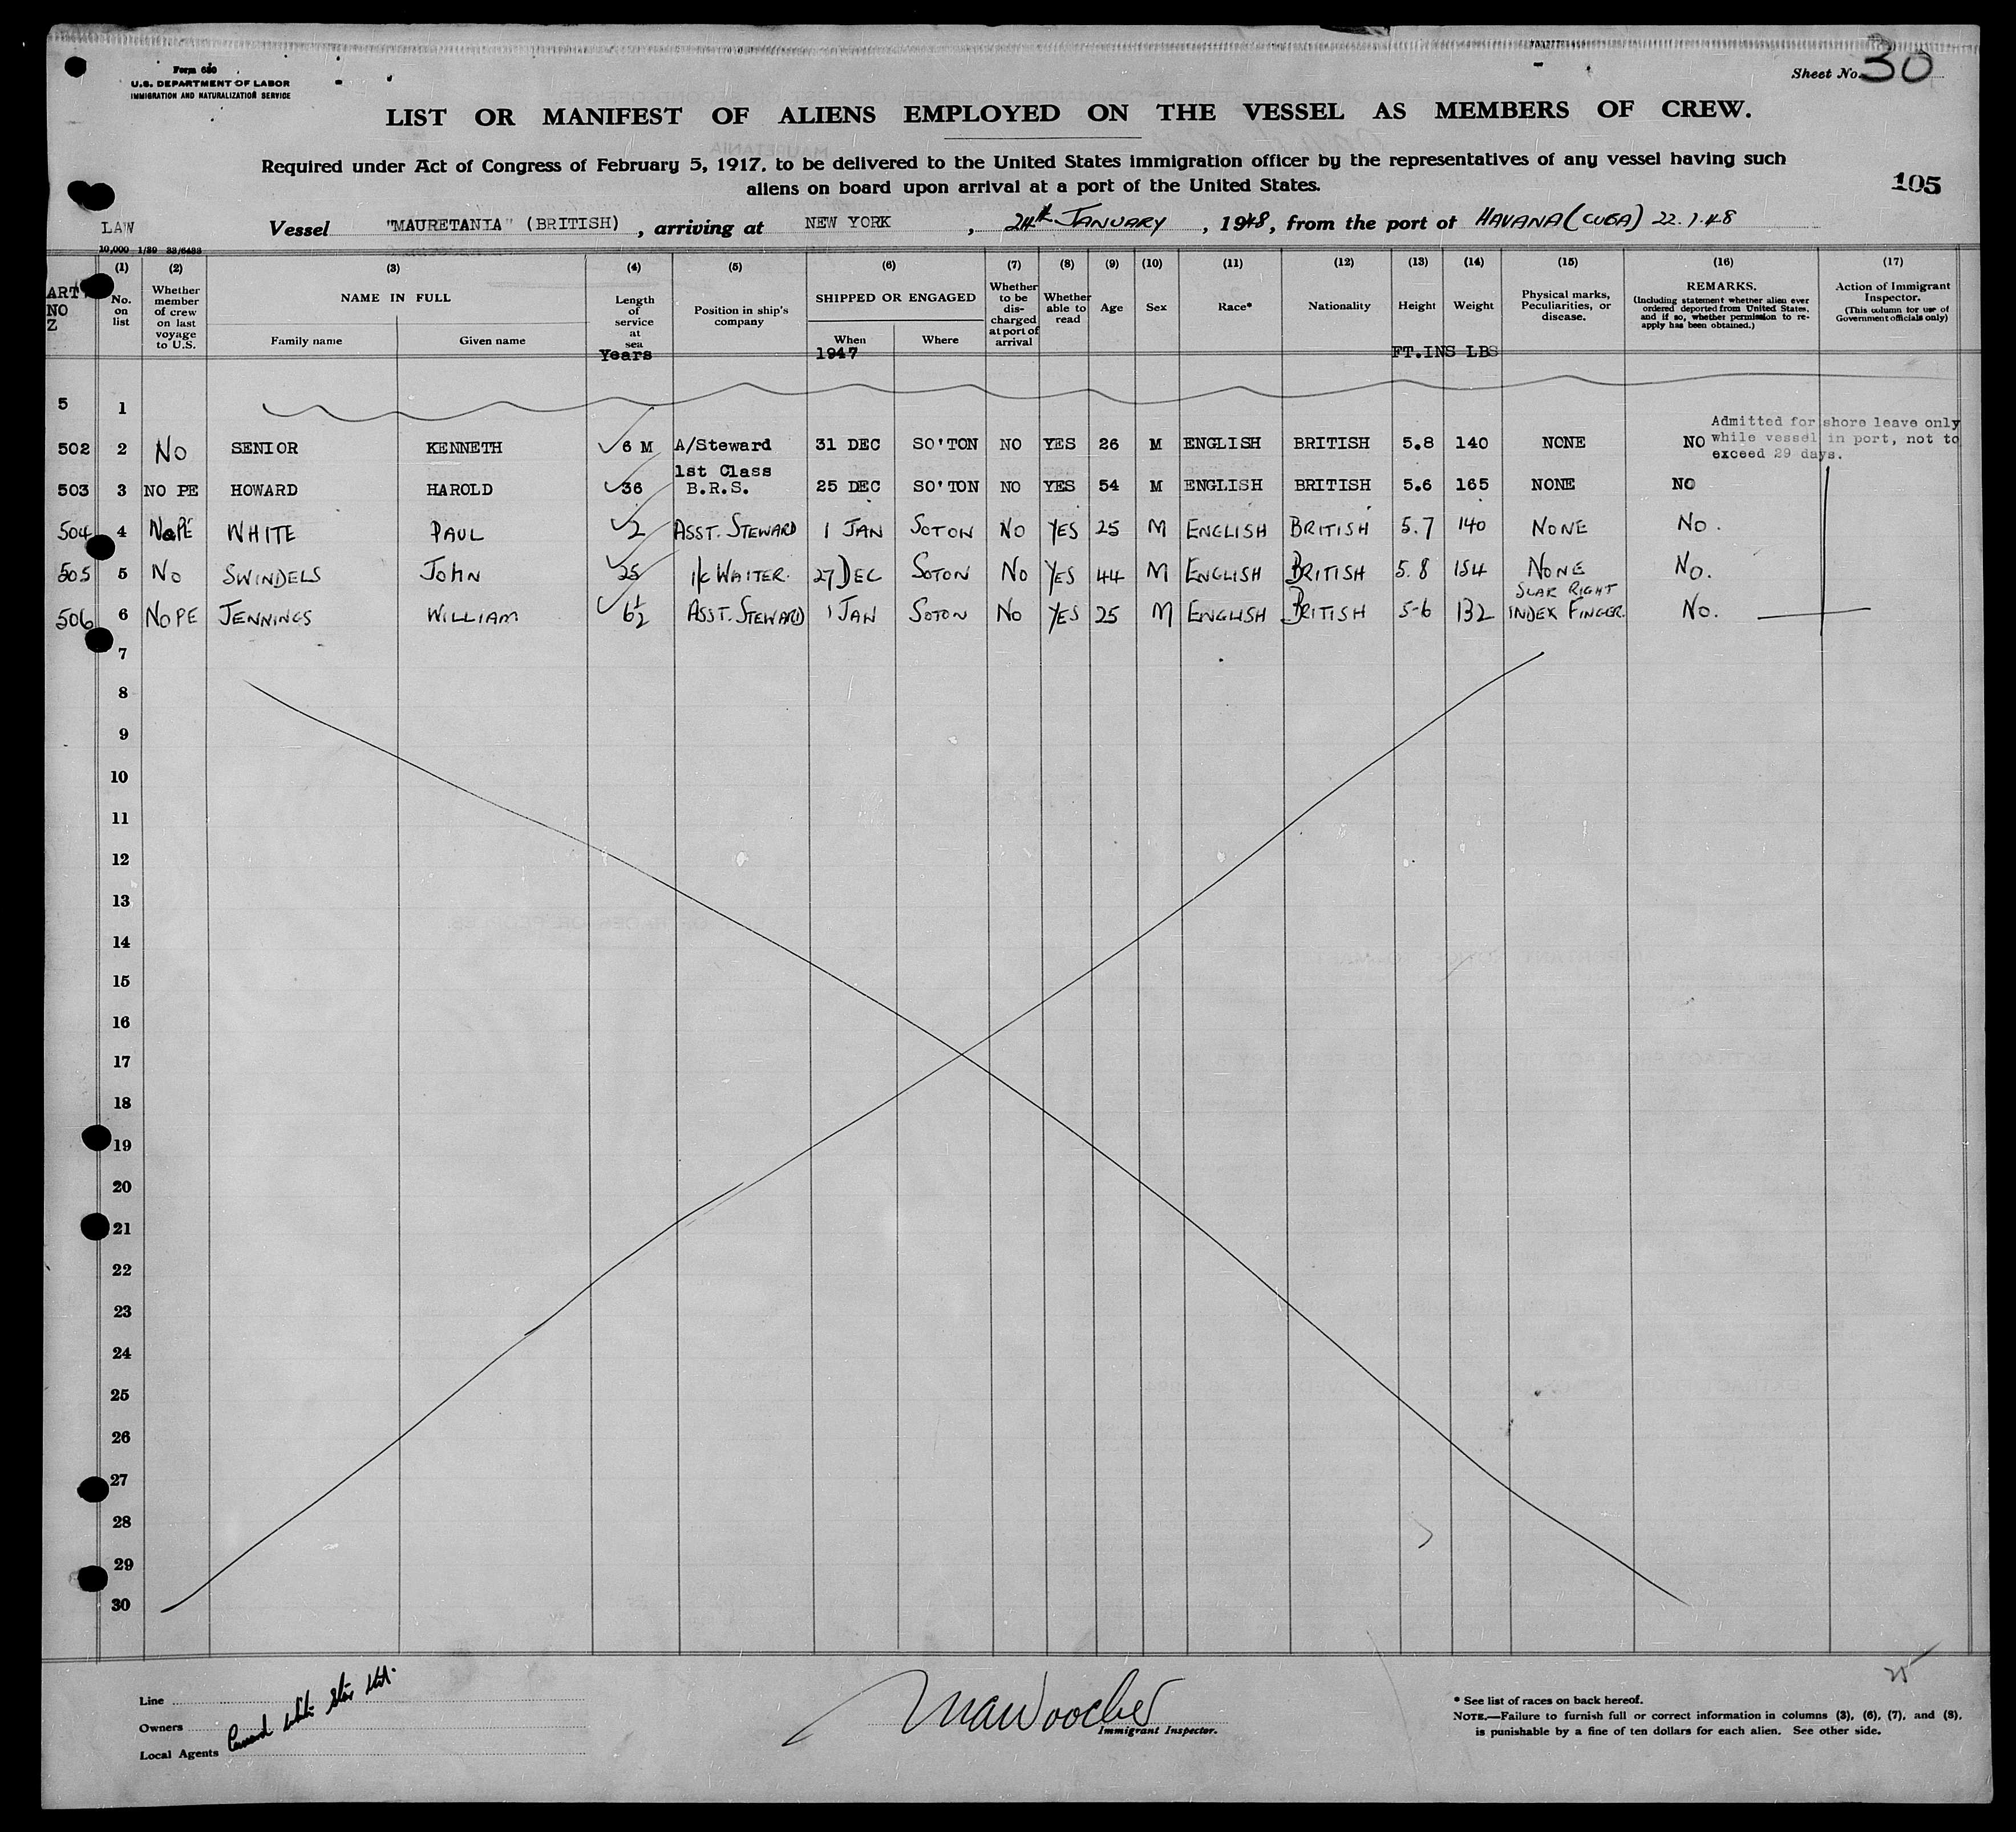 Form 680
U.S. DEPARTMENT OF LABOR
IMMIGRATION AND NATURALIZATION SERVICE
Sheet No. 30
LIST OR MANIFEST OF ALIENS EMPLOYED ON THE VESSEL AS MEMBERS OF CREW.
Required under Act of Congress of February 5, 1917, to be delivered to the United States immigration officer by the representatives of any vessel having such
aliens on board upon arrival at a port of the United States.
105
LAW
Vessel "MAURETANIA" (BRITISH), arriving at NEW YORK, 24th JANUARY, 1948, from the port of HAVANA (CUBA) 22.1.48
10,000 1/39 33/6433
(1) (2) (3) (4) (5) (6) (7) (8) (9) (10) (11) (12) (13) (14) (15) (16) (17)
ART NO Z
No. on list
Whether member of crew on last voyage to U.S.
NAME IN FULL
Family name Given name
Length of service at sea
Years
Position in ship's company
SHIPPED OR ENGAGED
When Where
1947
Whether to be discharged at port of arrival
Whether able to read
Age
Sex
Race*
Nationality
Height
Weight
FT.INS LBS
Physical marks, Peculiarities, or disease.
REMARKS.
(Including statement whether alien ever ordered deported from United States, and if so, whether permission to re-apply has been obtained.)
Action of Immigrant Inspector.
(This column for use of Government officials only)
5 1
Admitted for shore leave only
while vessel in port, not to
exceed 29 days.
502 2 No SENIOR KENNETH 6 M A/Steward 31 DEC SO'TON NO YES 26 M ENGLISH BRITISH 5.8 140 NONE NO
1st Class
503 3 NO PE HOWARD HAROLD 36 B.R.S. 25 DEC SO'TON NO YES 54 M ENGLISH BRITISH 5.6 165 NONE NO
504 4 NO PE WHITE PAUL 2 ASST. STEWARD 1 JAN SOTON NO YES 25 M ENGLISH BRITISH 5.7 140 NONE NO.
505 5 NO SWINDELS JOHN 25 1/C WAITER. 27 DEC SOTON NO YES 44 M ENGLISH BRITISH 5.8 154 NONE NO.
SCAR RIGHT
506 6 NO PE JENNINGS WILLIAM 6½ ASST. STEWARD 1 JAN SOTON NO YES 25 M ENGLISH BRITISH 5-6 132 INDEX FINGER. NO.
7
8
9
10
11
12
13
14
15
16
17
18
19
20
21
22
23
24
25
26
27
28
29
30
Line
Owners Cunard White Star Ltd.
Local Agents
Immigrant Inspector.
* See list of races on back hereof.
NOTE.—Failure to furnish full or correct information in columns (3), (6), (7), and (8),
is punishable by a fine of ten dollars for each alien. See other side.